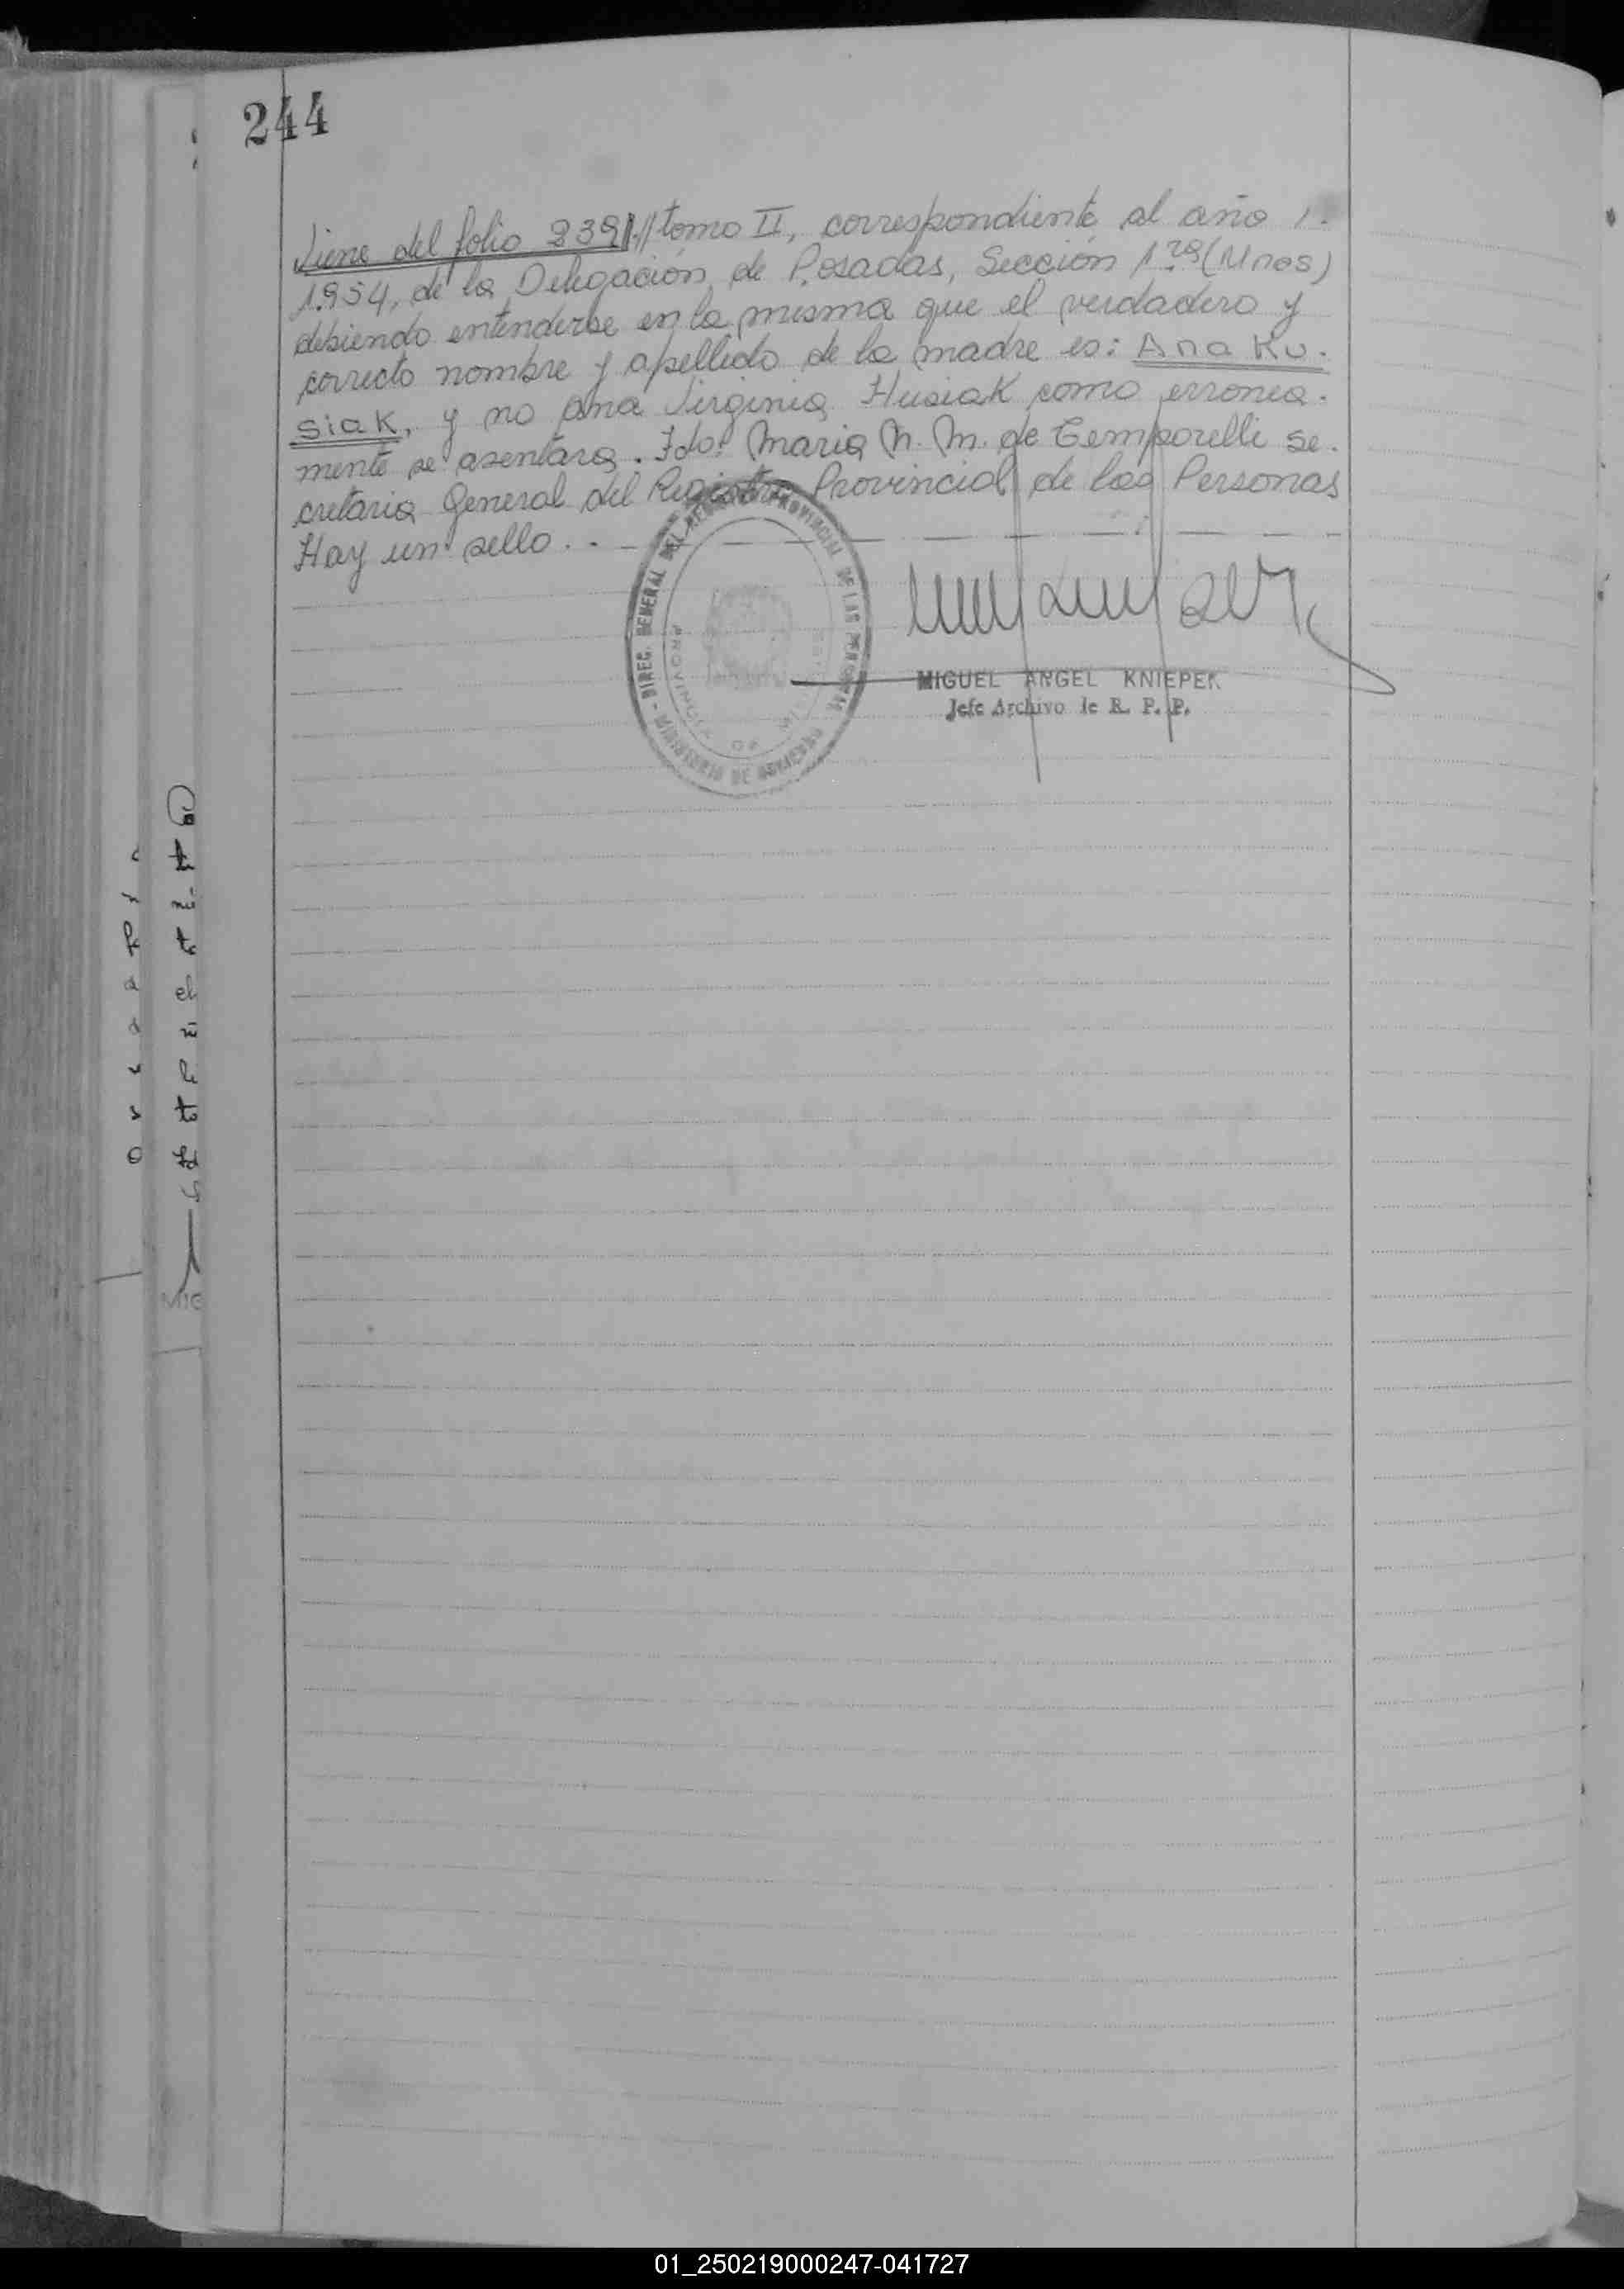 244
Viene del folio 239//.// tomo II, correspondiente al año 1.
1.954, de la Delegación de Posadas, Sección 1ra (Mnes)
debiendo entenderse en la misma que el verdadero y
correcto nombre y apellido de la madre es: Ana Ku-
siak, y no Ana Virginia Husiak como erronea-
mente se asentara. Fdo: Maria N. M. de Temporelli se-
cretaria General del Registro Provincial de las Personas
Hay un sello. -
DIREC. GENERAL DEL REGISTRO PROVINCIAL DE LAS PERSONAS - MINISTERIO DE GOBIERNO
PROVINCIA DE MISIONES
MIGUEL ANGEL KNIEPER
Jefe Archivo de R. P. P.
MIG
01_250219000247-041727